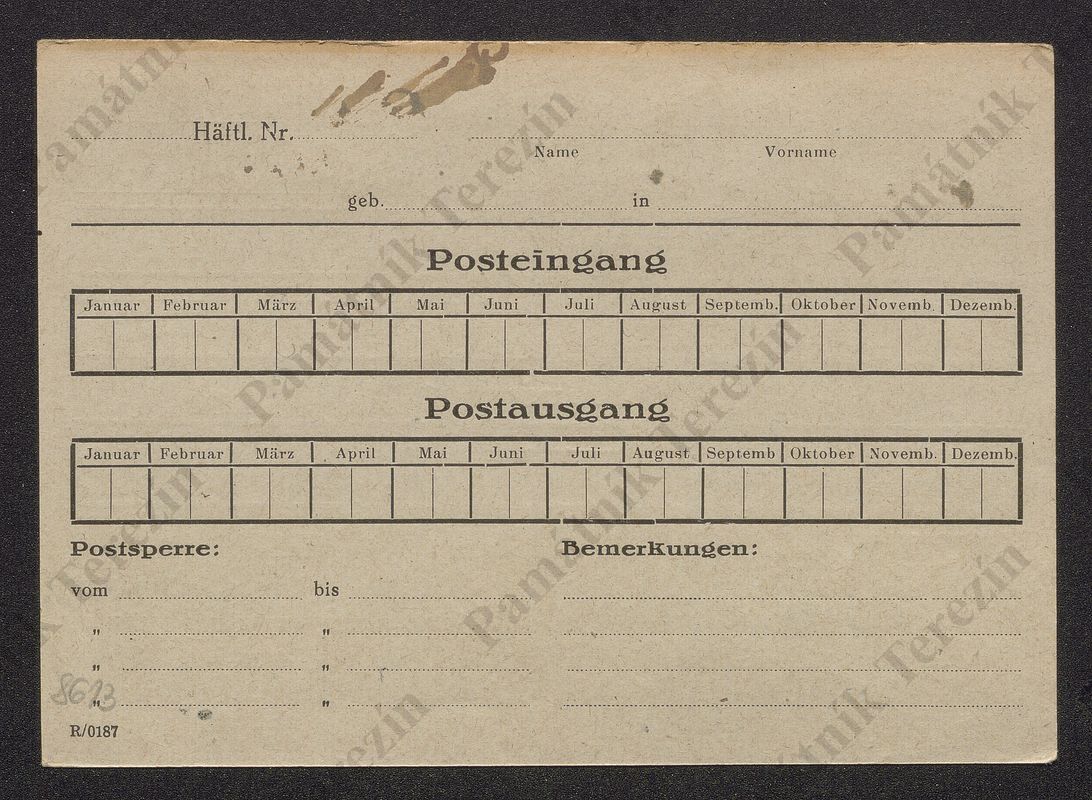 Häftl. Nr.
Name Vorname
geb. in
Posteingang
Januar Februar März April Mai Juni Juli August Septemb. Oktober Novemb. Dezemb.
Postausgang
Januar Februar März April Mai Juni Juli August Septemb Oktober Novemb. Dezemb.
Postsperre: Bemerkungen:
vom bis
" "
" "
" "
8613
R/0187
Památník Terezín